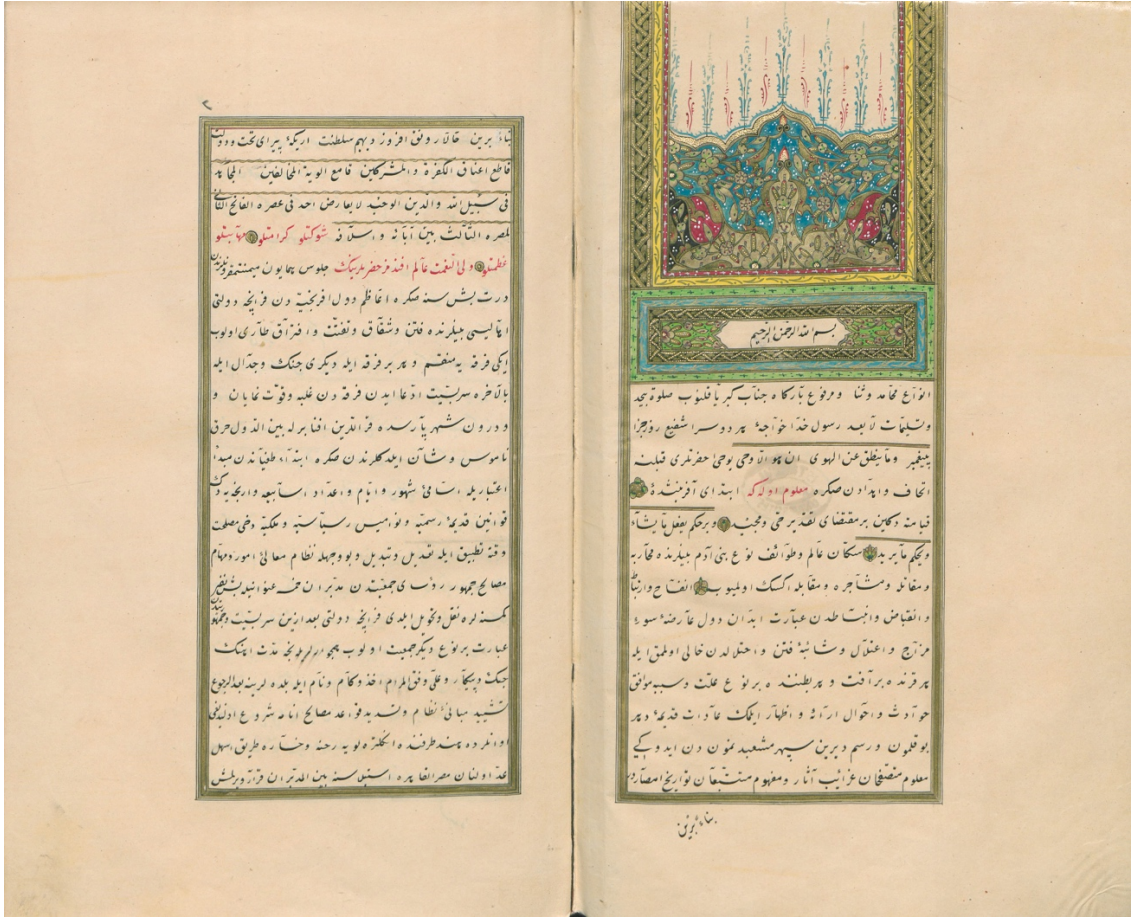 بسم الله الرحمن الرحيم
انواع محامد وثنا ومرفوع بارگاه جناب كبريا قلنوب صلوة بيحد
وتسليمات لا يعد رسول خدا خواجهٔ هر دوسرا شفيع روز جزا
پيغمبر وما ينطق عن الهوى ان هو الا وحى يوحى حضرتلرى قبلنه
اتحاف واهدادن صكره معلوم اوله كه ابتداى آفرينشدن
قيامته دكين بر مقتضاى تقدير حى ومجيد وبر حكم يفعل ما يشاء
ويحكم ما يريد سكان عالم وطوائف نوع بنى آدم بينلرنده محاربه
ومقاتله ومشاجره ومقابله اكسك اولميوب انفتاح وارتباط
وانقباض وانبساطدن عبارت ابدان دول عارضهٔ سوء
مزاج واعتلال وشائبهٔ فتن واختلالدن خالى اولمق ايله
هر قرنده بر آفت و هر بطننده بر نوع علت وسببه موافق
حوادث واحوال ارائه و اظهار ايلمك عادات قديمهٔ دهر
بوقلمون ورسم ديرين سپهر مشعبد نمون دن ايدوكى
معلوم متصفحان غرائب آثار ومفهوم متتبعان تواريخ امصاردر
بناء برين
٢
بناء برين حالا رونق افروز ديهيم سلطنت اريكه پيراى تخت ودولت
قاطع اعناق الكفرة والمشركين قامع الوية المخالفين المجاهد
فى سبيل الله والدين الوحيد لا يعارض احد فى عصره الفاتح الثانى
لمصره الثالث بين آبائه واسلافه شوكتلو كرامتلو مهابتلو
عظمتلو ولى النعمت عالم افندمز حضرتلرينك جلوس همايون ميمنتمقرونلرندن
درت بش سنه صكره اعاظم دول افرنجيه دن فرانچه دولتى
اهاليسى بينلرنده فتن وشقاق وتفتت وافتراق طارى اولوب
ايكى فرقه يه منقسم و هر بر فرقه ايله ديكرى جنك وجدال ايله
بالاخره سربستيت ادعا ايدن فرقه دن غلبه وقوت نمايان و
ودرون شهر پارسده
ناموس وشان ايله كلرندن صكره ابتداء طغياندن مبدأ
اعتباريله اسامئ شهور وايام واعداد اسابيعه و
قوانين قديمهٔ رسميه ونواميس رسياسيه وملكيه
وقته تطبيق ايله تعديل وتبديل وبو وجهله نظام معالئ امور ومهام
مصالح جمهور رؤساى جمعيتدن مدبران خمسه عنوانيله بش نفر
كمسنه لره نقل وتحويل ايلدى فرانچه دولتى بعد ازين سربستيت وجمهوريتدن
عبارت بر نوع ديكر جمعيت اولوب همجوارلريله نجه مدت ايتدك
جنك وپيكار وعلى وفق المرام اخذ وكام ونام ايله بلده لرينه بعد الرجوع
تشييد مبانئ نظام وتسديد قواعد مصالح انامه شروع
هند طرفنده انكلتره لويه رخنه وخساره طريق اسهل
عد اولنان مصر القاهره استيلاسنه بين المدبران قرار ويرلمش